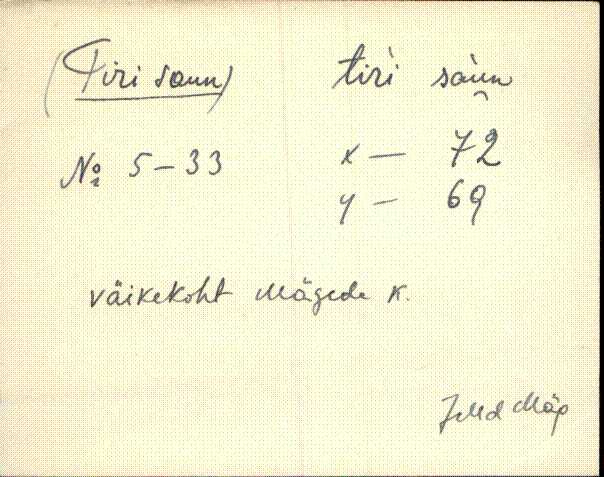 (Tiri saun) tiri saun
№ 5-33 x — 72
y — 69
väikekoht Mägede k.